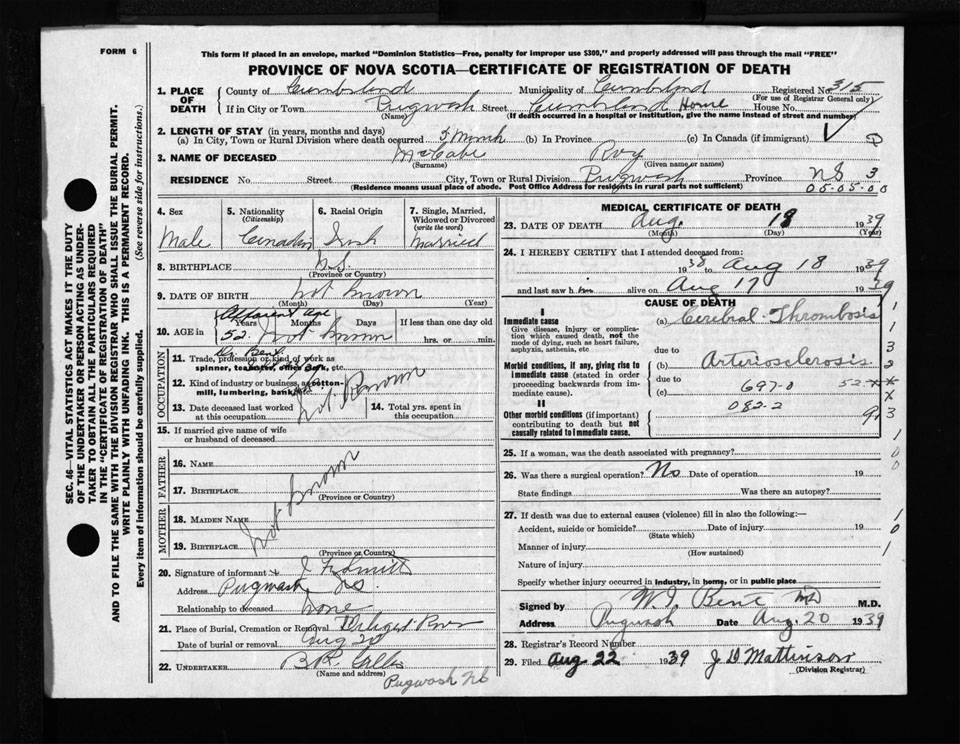 FORM 6
This form if placed in an envelope, marked "Dominion Statistics—Free, penalty for improper use $300," and properly addressed will pass through the mail "FREE"
PROVINCE OF NOVA SCOTIA—CERTIFICATE OF REGISTRATION OF DEATH
1. PLACE OF DEATH
County of Cumberland Municipality of Cumberland Registered No. 315
(For use of Registrar General only)
If in City or Town Pugwash Street Cumberland Home House No.
(Name) (If death occurred in a hospital or institution, give the name instead of street and number)
2. LENGTH OF STAY (in years, months and days)
(a) In City, Town or Rural Division where death occurred 5 Month (b) In Province (c) In Canada (if immigrant)
3. NAME OF DECEASED McCabe Roy
(Surname) (Given name or names)
RESIDENCE No. Street City, Town or Rural Division Pugwash Province NS 3
(Residence means usual place of abode. Post Office Address for residents in rural parts not sufficient) 05-05-00
SEC. 46—VITAL STATISTICS ACT MAKES IT THE DUTY
OF THE UNDERTAKER OR PERSON ACTING AS UNDER-
TAKER TO OBTAIN ALL THE PARTICULARS REQUIRED
IN THE "CERTIFICATE OF REGISTRATION OF DEATH"
AND TO FILE THE SAME WITH THE DIVISION REGISTRAR WHO SHALL ISSUE THE BURIAL PERMIT.
WRITE PLAINLY WITH UNFADING INK. THIS IS A PERMANENT RECORD.
Every item of information should be carefully supplied. (See reverse side for instructions.)
4. Sex
Male
5. Nationality
(Citizenship)
Canadian
6. Racial Origin
Irish
7. Single, Married, Widowed or Divorced
(write the word)
Married
8. BIRTHPLACE N.S.
(Province or Country)
9. DATE OF BIRTH not known
(Month) (Day) (Year)
Apparent age
10. AGE in Years Months Days If less than one day old
52 not known hrs. or min.
OCCUPATION
11. Trade, profession or kind of work as
spinner, teamster, office clerk, etc.
12. Kind of industry or business, as cotton-
mill, lumbering, bank, etc.
not Known
13. Date deceased last worked at this occupation
14. Total yrs. spent in this occupation
15. If married give name of wife
or husband of deceased
FATHER
16. NAME
17. BIRTHPLACE
(Province or Country)
MOTHER
18. MAIDEN NAME
19. BIRTHPLACE
(Province or Country)
not known
20. Signature of informant
Address Pugwash NS.
Relationship to deceased none
21. Place of Burial, Cremation or Removal
Date of burial or removal Aug 20
22. UNDERTAKER
(Name and address)
Pugwash NS
MEDICAL CERTIFICATE OF DEATH
23. DATE OF DEATH Aug. 18 1939
(Month) (Day) (Year)
24. I HEREBY CERTIFY that I attended deceased from:
1938 to Aug 18 1939
and last saw him alive on Aug 17 1939
CAUSE OF DEATH
I
Immediate cause (a) Cerebral Thrombosis
Give disease, injury or complica-
tion which caused death, not the
mode of dying, such as heart failure,
asphyxia, asthenia, etc
due to
Morbid conditions, if any, giving rise to (b) Arteriosclerosis
immediate cause (stated in order due to
proceeding backwards from im- (c) 697-0 52-xx
mediate cause).
II 082-2
Other morbid conditions (if important)
contributing to death but not
causally related to immediate cause.
1
1
3
3
2
x
93
1
0
0
25. If a woman, was the death associated with pregnancy?
26. Was there a surgical operation? No Date of operation 19
State findings Was there an autopsy?
27. If death was due to external causes (violence) fill in also the following:—
Accident, suicide or homicide? Date of injury 19
(State which)
Manner of injury
(How sustained)
Nature of injury
1
0
1
Specify whether injury occurred in industry, in home, or in public place
Signed by W. J. Bent MD M.D.
Address Pugwash Date Aug. 20 1939
28. Registrar's Record Number
29. Filed Aug 22 1939 J D Mattinson
(Division Registrar)